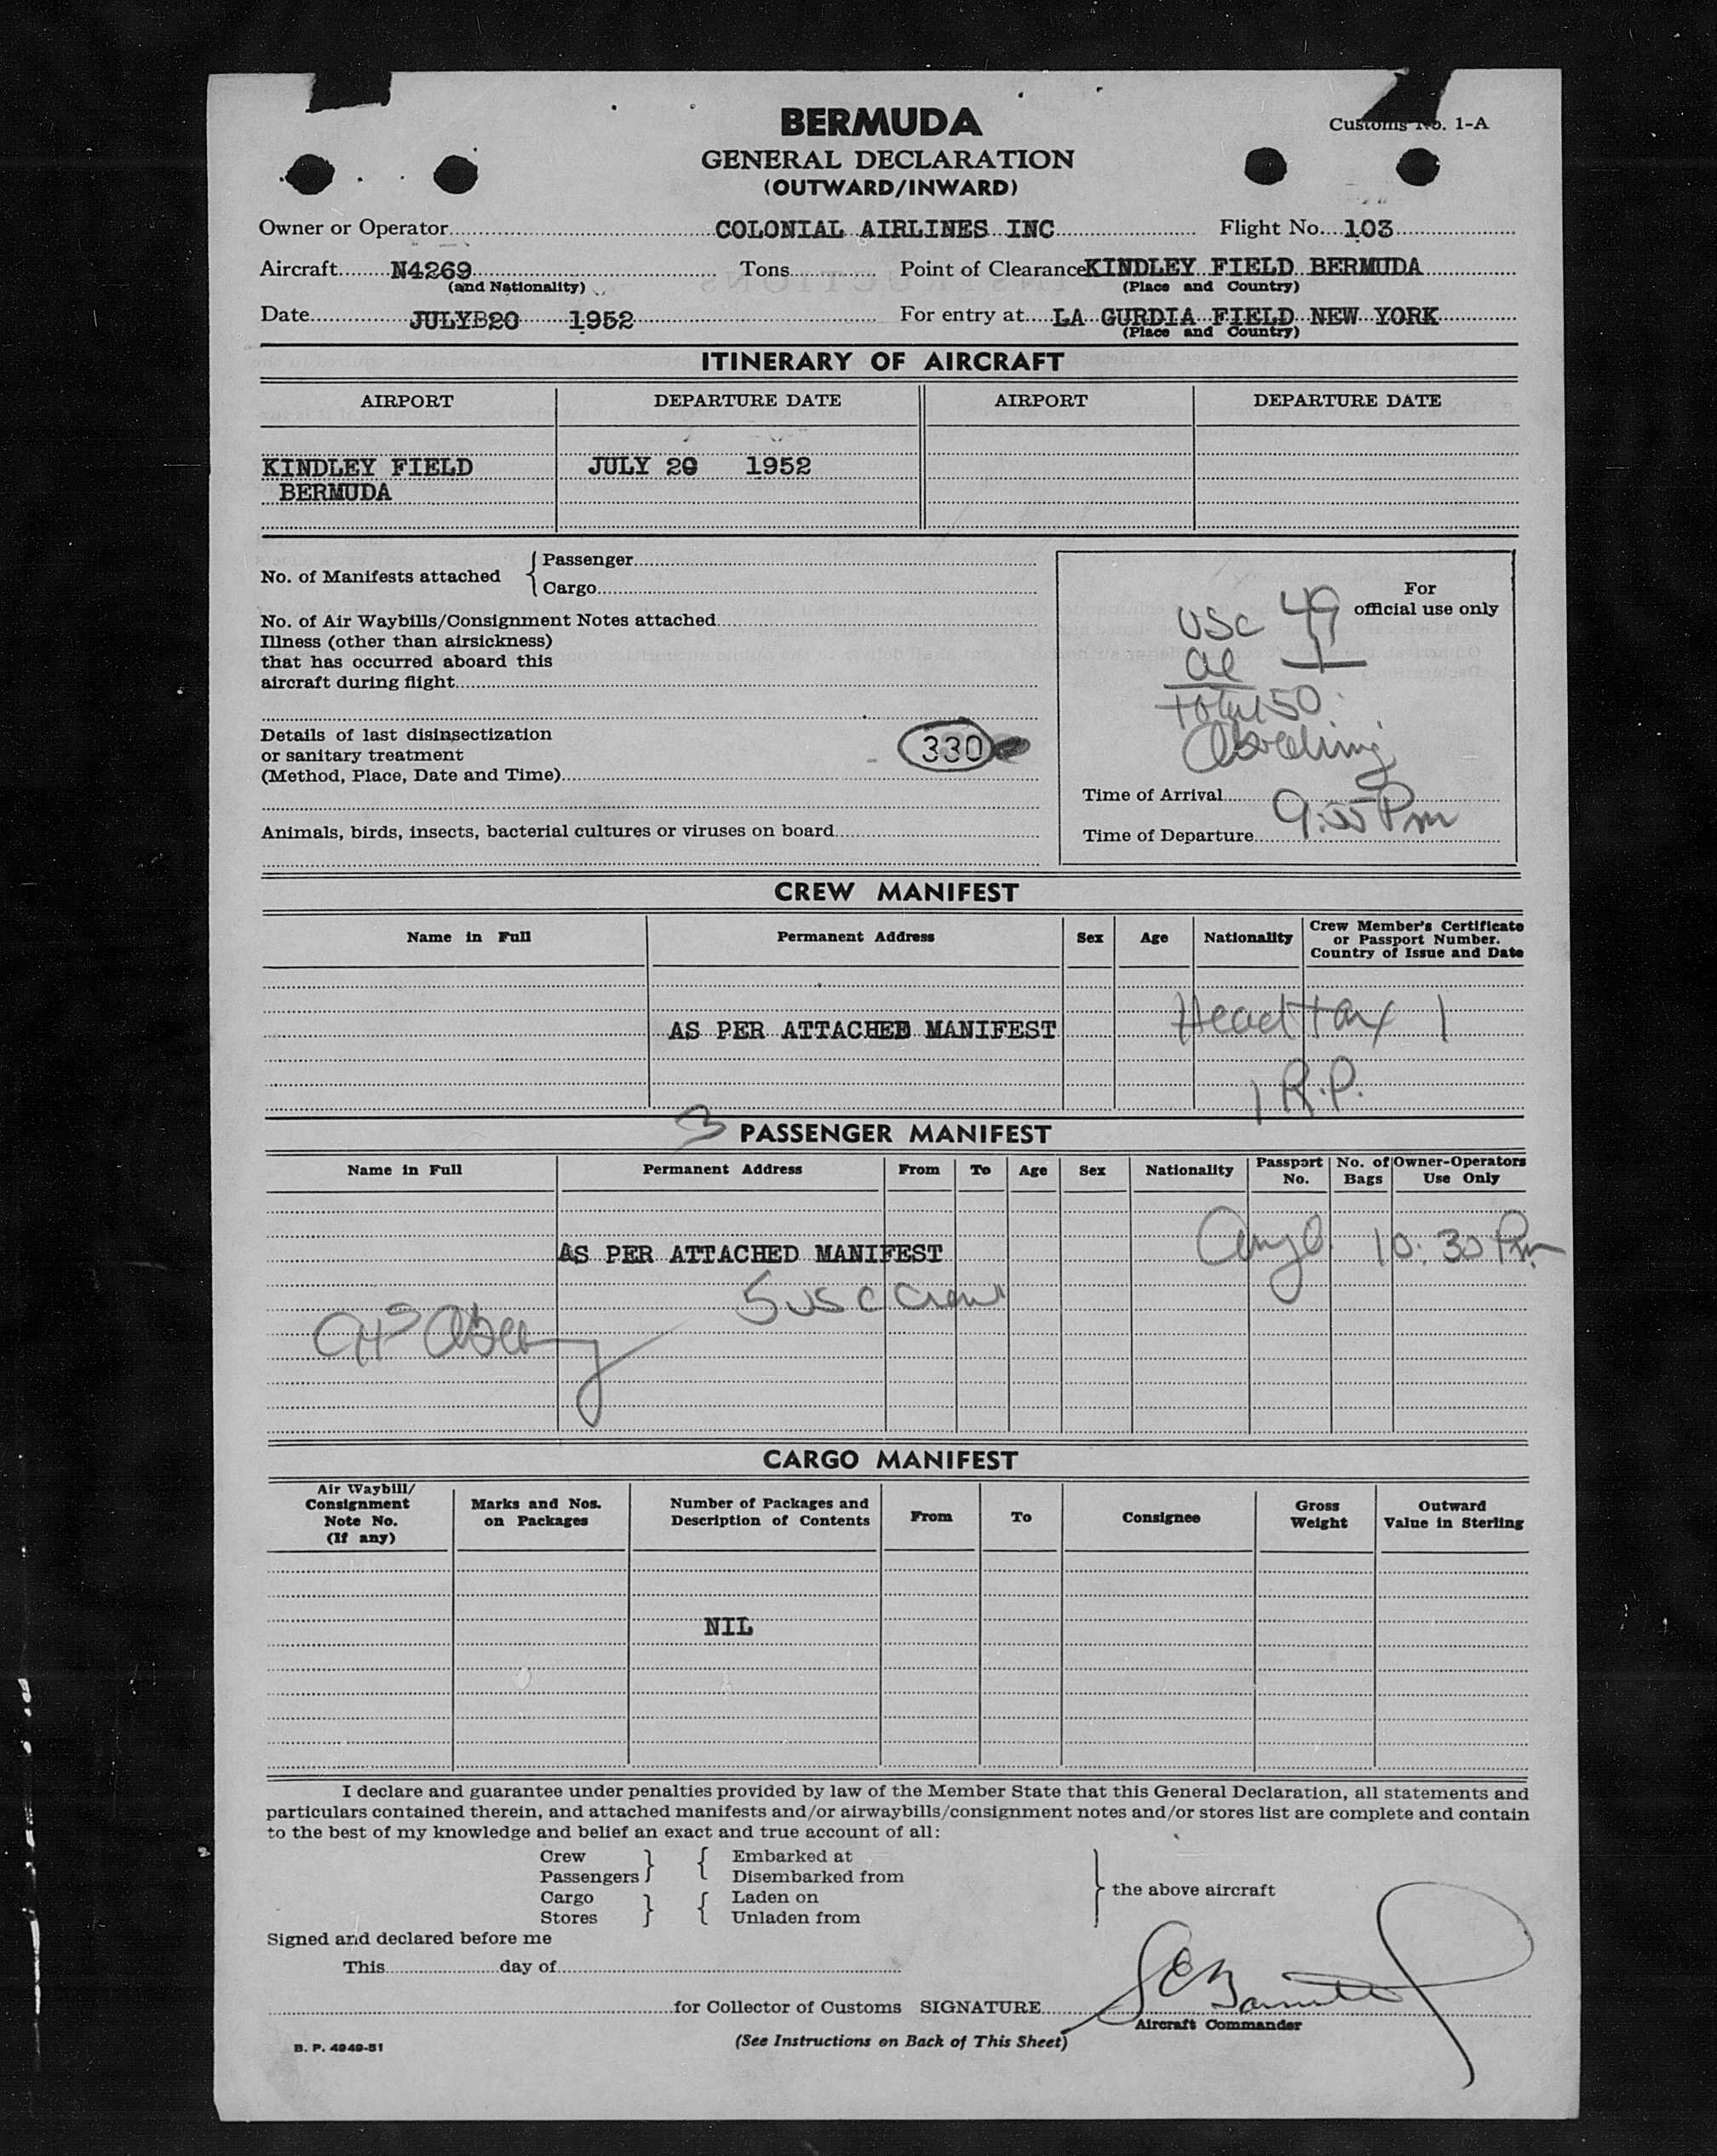 BERMUDA
Customs No. 1-A
GENERAL DECLARATION
(OUTWARD/INWARD)
Owner or Operator COLONIAL AIRLINES INC Flight No. 103
Aircraft N4269 Tons Point of Clearance KINDLEY FIELD BERMUDA
(and Nationality) (Place and Country)
Date JULY 20 1952 For entry at LA GURDIA FIELD NEW YORK
(Place and Country)
ITINERARY OF AIRCRAFT
AIRPORT DEPARTURE DATE AIRPORT DEPARTURE DATE
KINDLEY FIELD JULY 20 1952
BERMUDA
No. of Manifests attached { Passenger
Cargo
For
official use only
USC 49
al 1
Total 50
No. of Air Waybills/Consignment Notes attached
Illness (other than airsickness)
that has occurred aboard this
aircraft during flight
Details of last disinsectization
or sanitary treatment
(Method, Place, Date and Time)
330
Time of Arrival 9:55 Pm
Time of Departure
Animals, birds, insects, bacterial cultures or viruses on board
CREW MANIFEST
Name in Full Permanent Address Sex Age Nationality Crew Member's Certificate
or Passport Number.
Country of Issue and Date
Head tax 1
AS PER ATTACHED MANIFEST
1 R.P.
3 PASSENGER MANIFEST
Name in Full Permanent Address From To Age Sex Nationality Passport No. No. of Bags Owner-Operators Use Only
10:30 Pm
AS PER ATTACHED MANIFEST
5 USC Crew
CARGO MANIFEST
Air Waybill/
Consignment
Note No.
(If any)
Marks and Nos.
on Packages
Number of Packages and
Description of Contents
From To Consignee
Gross
Weight
Outward
Value in Sterling
NIL
I declare and guarantee under penalties provided by law of the Member State that this General Declaration, all statements and
particulars contained therein, and attached manifests and/or airwaybills/consignment notes and/or stores list are complete and contain
to the best of my knowledge and belief an exact and true account of all:
Crew Embarked at
Passengers } { Disembarked from
Cargo Laden on
Stores } { Unladen from
} the above aircraft
Signed and declared before me
This day of
for Collector of Customs SIGNATURE
Aircraft Commander
(See Instructions on Back of This Sheet)
B. P. 4949-51